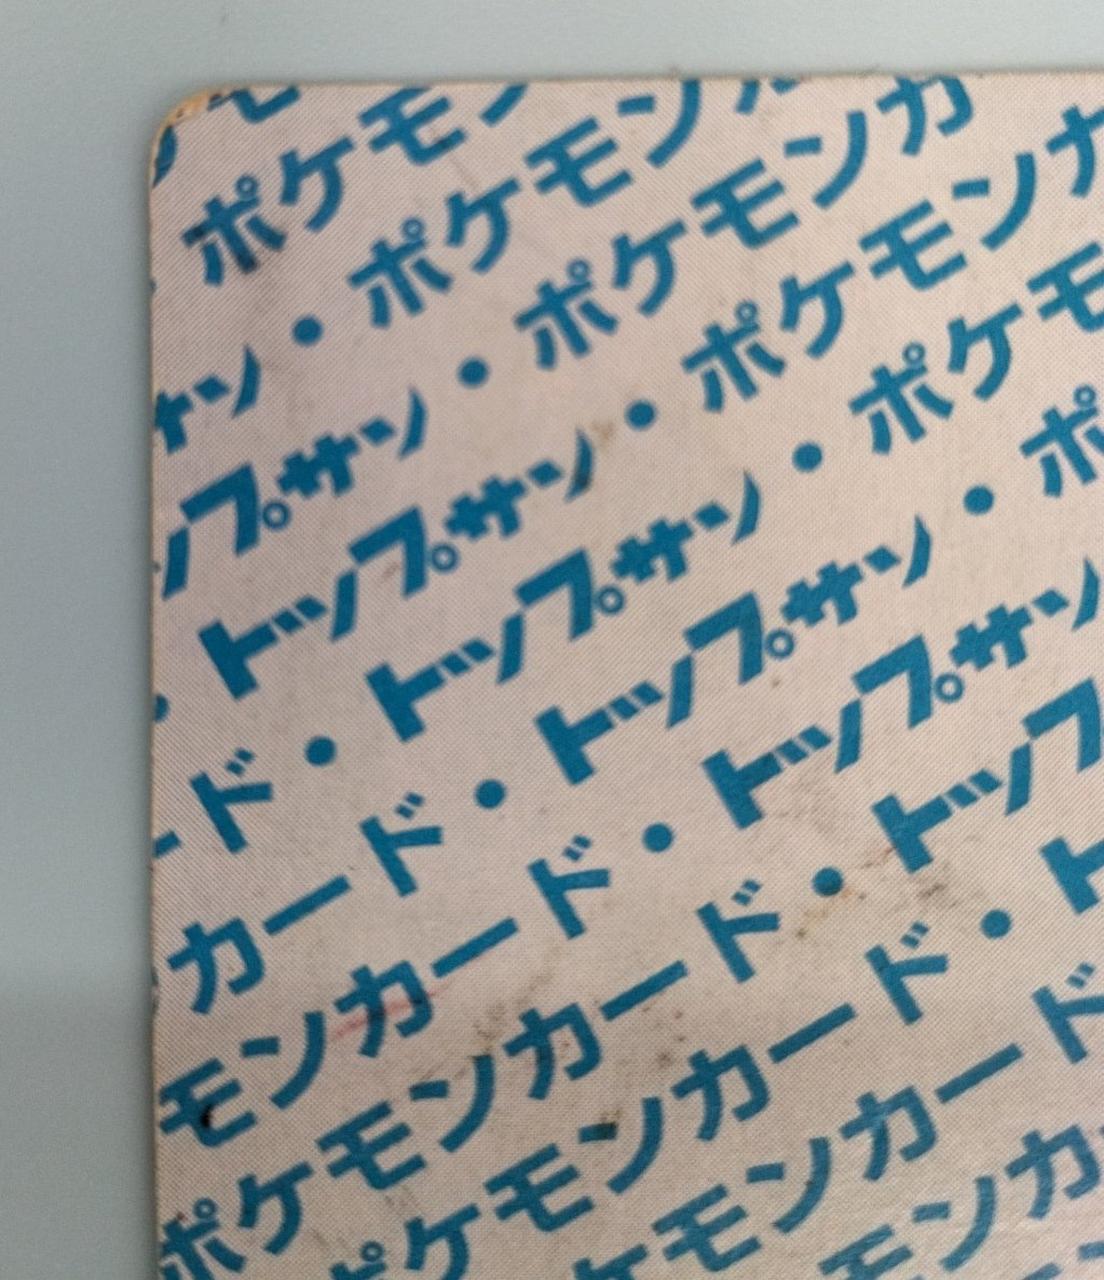 モ
ポケモン
サン・ポケモンカ
ップサン・ポケモンカ
・トップサン・ポケモンカ
ード・トップサン・ポケモ
カード・トップサン・ポ
モンカード・トップサン
ポケモンカード・トップ
ポケモンカード・ト
ケモンカード
モンカ